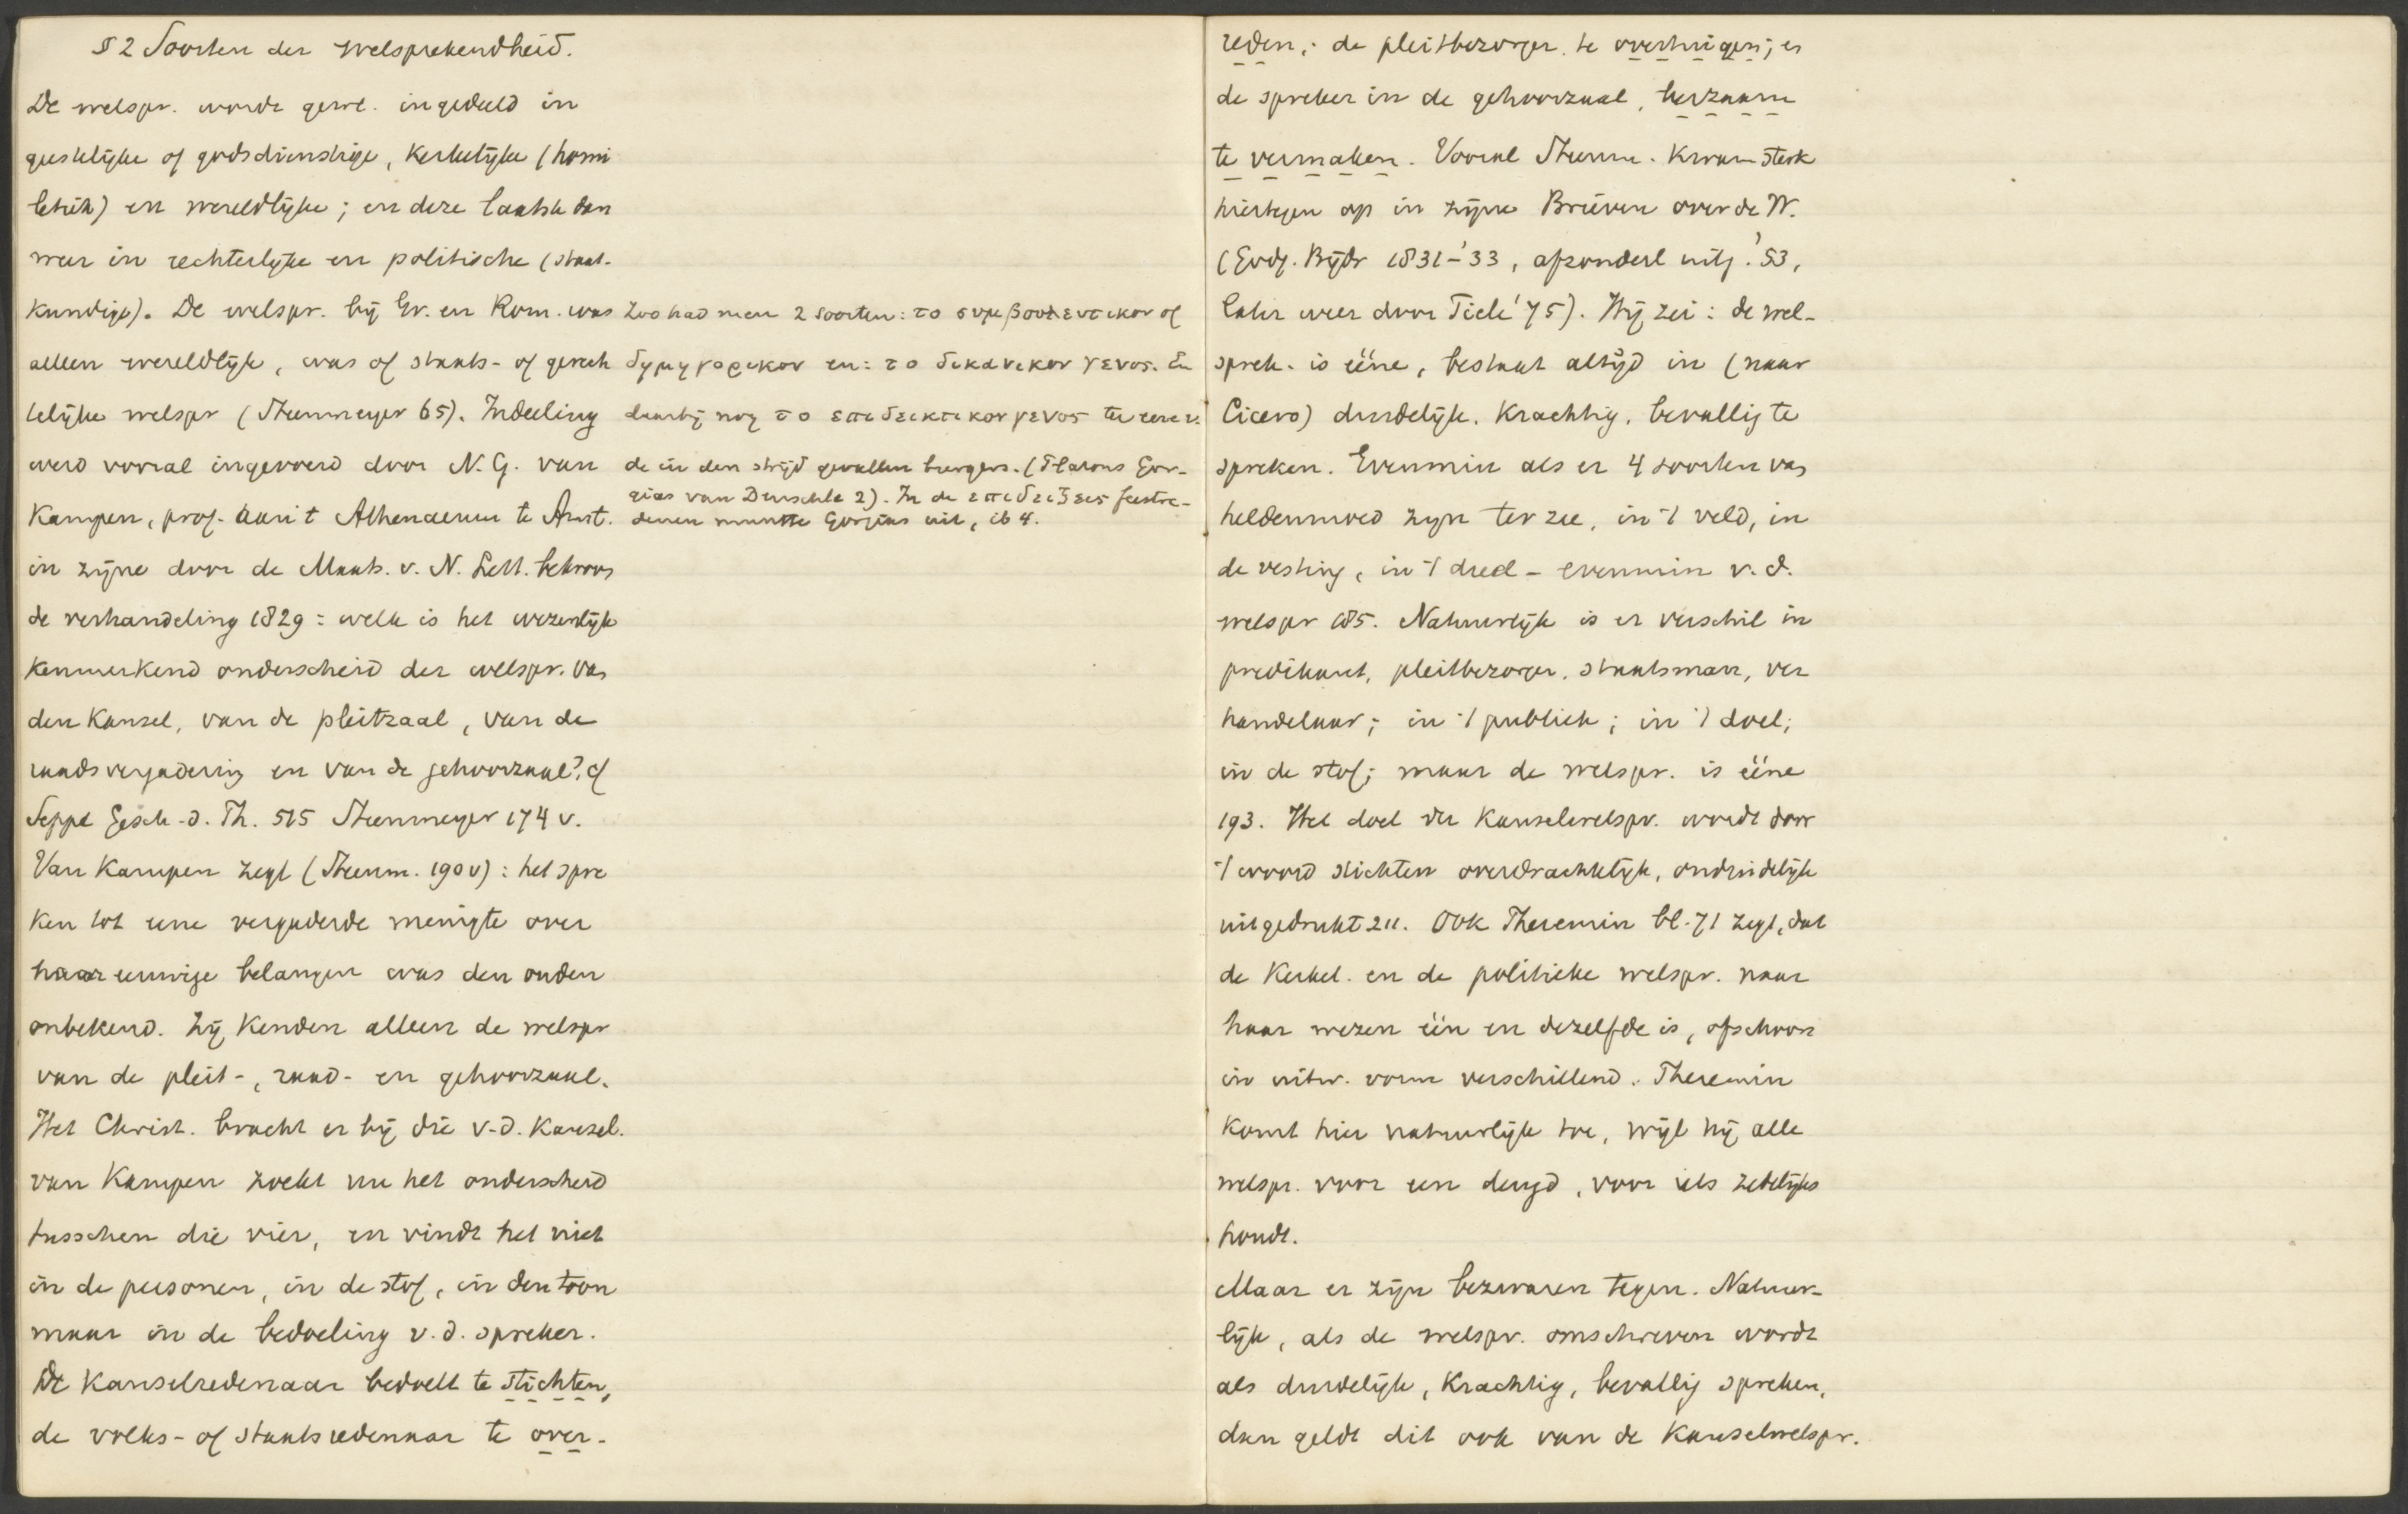 § 2 Soorten der welsprekendheid.
De welspr. wordt gew. ingedeeld in
geestelijke of godsdienstige, kerkelijke (homi
letiek) en wereldlijke; en deze laatste dan
weer in rechterlijke en politische (staat-
kundige). De welspr. bij Gr. en Rom. was
alleen wereldlijk, was of staats- of gerech
telijke welspr (Steenmeyer 65). Indeeling
werd vooral ingevoerd door N. G. van
Kampen, prof. aan 't Athenaeum te Amst.
in zijne door de Maats. v. N. Lett. bekroon
de verhandeling 1829: welk is het wezenlijk
kenmerkend onderscheid der welspr. van
den kansel, van de pleitzaal, van de
raadsvergadering en van de gehoorzaal? cf
Sepp Gesch. d. Th. 515 Steenmeyer 174 v.
Van Kampen zegt (Steenm. 190 v): het spre
ken tot eene vergaderde menigte over
haar eeuwige belangen was den ouden
onbekend. Zij kenden alleen de welspr
van de pleit-, raad- en gehoorzaal.
Het Christ. bracht er bij die v.d. kansel.
van Kampen zoekt nu het onderscheid
tusschen die vier, en vindt het niet
in de personen, in de stof, in den toon
maar in de bedoeling v.d. spreker.
De kanselredenaar bedoelt te stichten,
de volks- of staatsredenaar te over-
Zoo had men 2 soorten: το συμβουλευτικον of
δημηγορικον en: το δικανικον γενος. En
daarbij nog το επιδεικτικον γενος ter eere v.
de in den strijd gevallen burgers. (Platons Gor-
gias van Deuschle 2). In de επιδειξεις feestre-
denen muntte Gorgias uit, ib 4.
reden; de pleitbezorger te overtuigen; en
de spreker in de gehoorzaal, leerzaam
te vermaken. Vooral Steenm. kwam sterk
hiertegen op in zijne Brieven over de W.
(Godg. Bijdr 1831-'33, afzonderl uitg. '53,
later weer door Tiele '75). Hij zei: de wel-
sprek. is ééne, bestaat altijd in (naar
Cicero) duidelijk, krachtig, bevallig te
spreken. Evenmin als er 4 soorten van
heldenmoed zijn ter zee, in 't veld, in
de vesting, in 't duel - evenmin v. d.
welspr 185. Natuurlijk is er verschil in
predikant, pleitbezorger, staatsman, ver
handelaar; in 't publiek; in 't doel;
in de stof; maar de welspr. is ééne
193. Het doel der kanselwelspr. wordt door
't woord stichten overdrachtelijk, onduidelijk
uitgedrukt 211. Ook Theremin bl. 71 zegt, dat
de kerkel. en de politieke welspr. naar
haar wezen één en dezelfde is, ofschoon
in uitw. vorm verschillend. Theremin
komt hier natuurlijk toe, wijl hij alle
welspr. voor een deugd, voor iets zedelijks
houdt.
Maar er zijn bezwaren tegen. Natuur-
lijk, als de welspr. omschreven wordt
als duidelijk, krachtig, bevallig spreken,
dan geldt dit ook van de kanselwelspr.